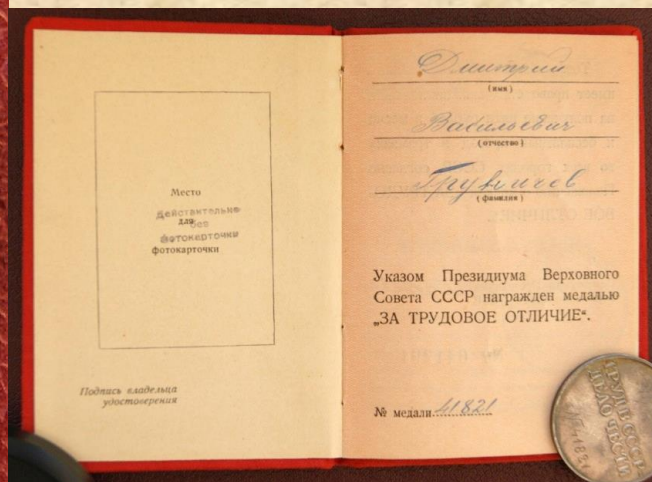 Место
для
фотокарточки
Действительно
без
фотокарточки
Подпись владельца
удостоверения
Дмитрий
(имя)
Васильевич
(отчество)
(фамилия)
Указом Президиума Верховного
Совета СССР награжден медалью
„ЗА ТРУДОВОЕ ОТЛИЧИЕ“.
№ медали 41821
ТРУД В СССР
ДЕЛО ЧЕСТИ
41821